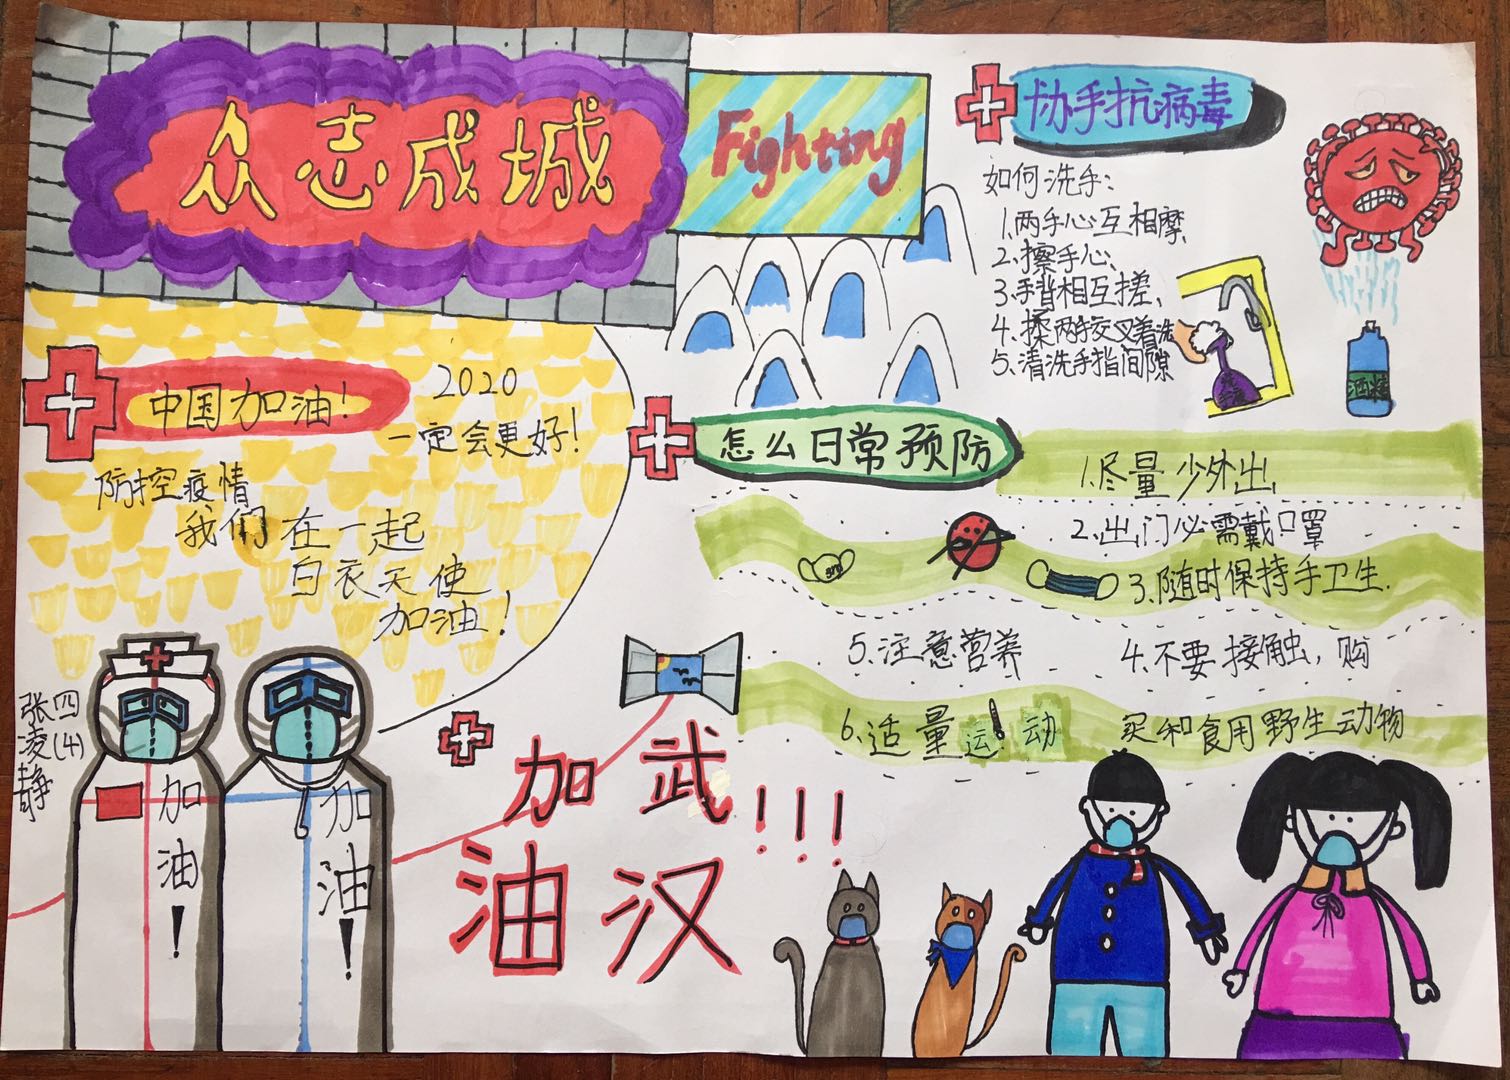 众志成城
Fighting
协手抗病毒
如何洗手:
1.两手心互相摩、
2.擦手心、
3.手背相互搓、
4.揉两手交叉着洗
5.清洗手指间隙
洗手液
酒精
中国加油!
2020
一定会更好!
防控疫情
我们在一起
白衣天使
加油!
怎么日常预防
1.尽量少外出
2.出门必需戴口罩
3.随时保持手卫生.
4.不要接触,购
买和食用野生动物
5.注意营养
6.适量运动
3m
四(4)
张凌静
加油!
加油!
武汉
加油
!!!